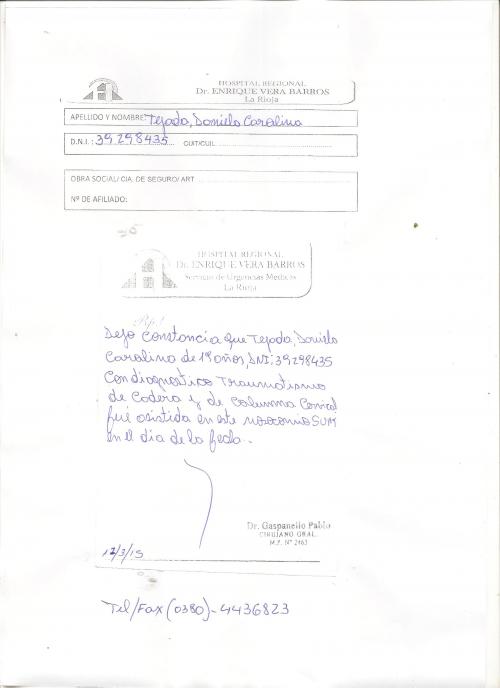 HOSPITAL REGIONAL
Dr. ENRIQUE VERA BARROS
La Rioja
APELLIDO Y NOMBRE: Tejada, Daniela Carolina
D.N.I.: 39298435 CUIT/CUIL
OBRA SOCIAL/ CIA. DE SEGURO/ ART
Nº DE AFILIADO:
HOSPITAL REGIONAL
Dr. ENRIQUE VERA BARROS
Servicio de Urgencias Medicas
La Rioja
Rp/
Dejo constancia que Tejada, Daniela
Carolina de 19 años, DNI: 39298435
Con diagnostico Traumatismo
de Cadera y de Columna Cervical
fué asistida en este nosocomio SUM
en el dia de la fecha.
Dr. Gaspanello Pablo
CIRUJANO GRAL.
M.P. Nº 2463
12/3/15
Tel/Fax (0380)-4436823